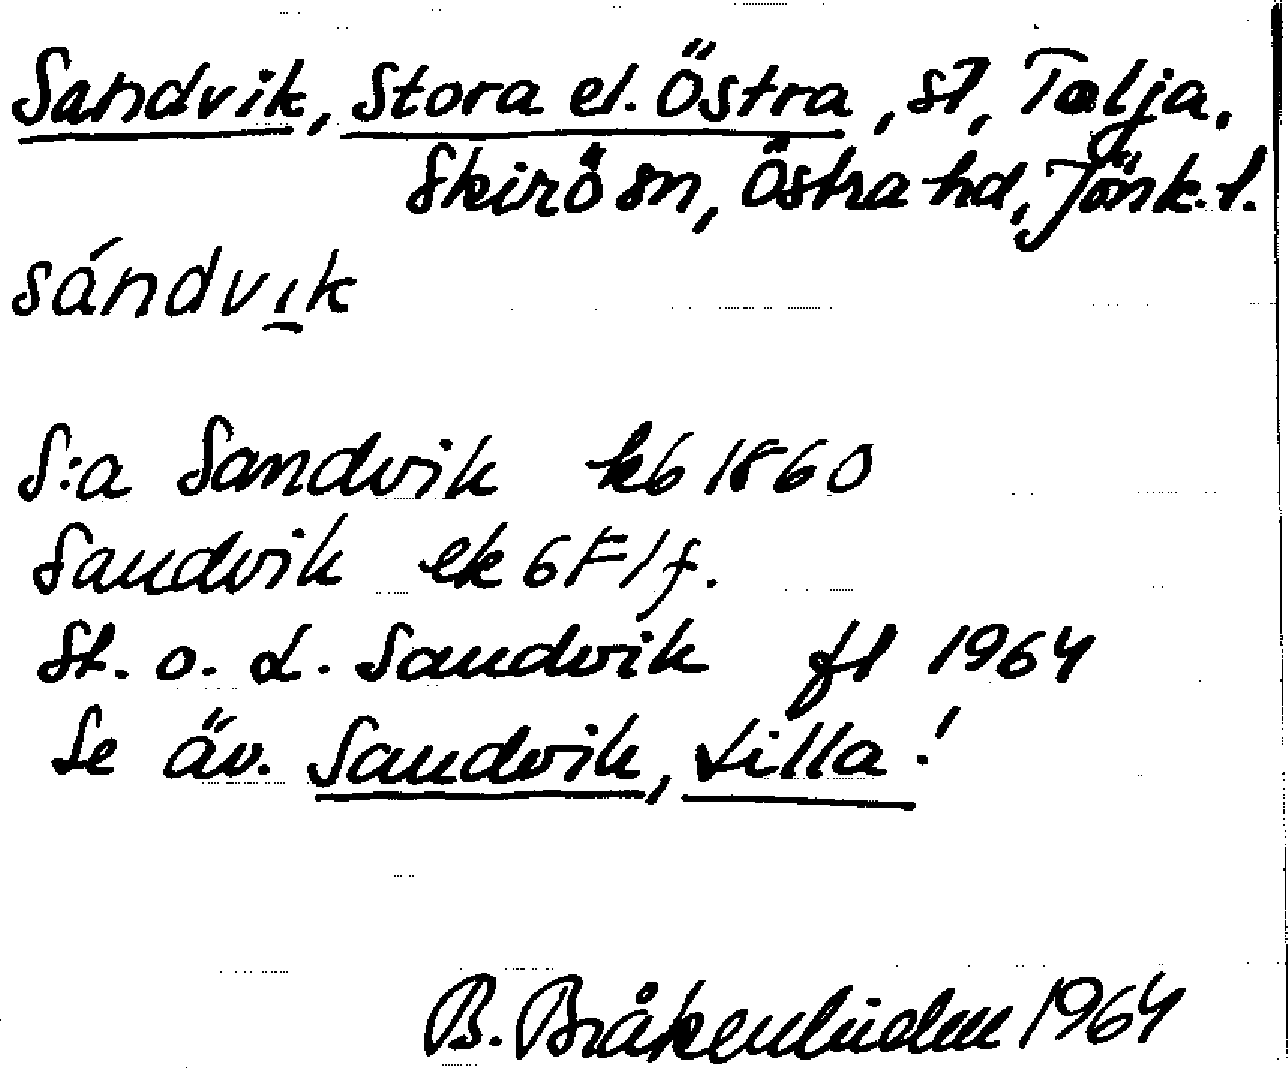 Sandvik, Stora el. Östra, st, Tælja.
Skirö sn, Östra hd, Jönk. l.
sándvı̱k
S:a Sandvik kb 1860
Sandvik ek 6F1f.
St. o. L. Sandvik fl 1964
Se äv. Sandvik, Lilla!
B. Bråkenhielm 1964